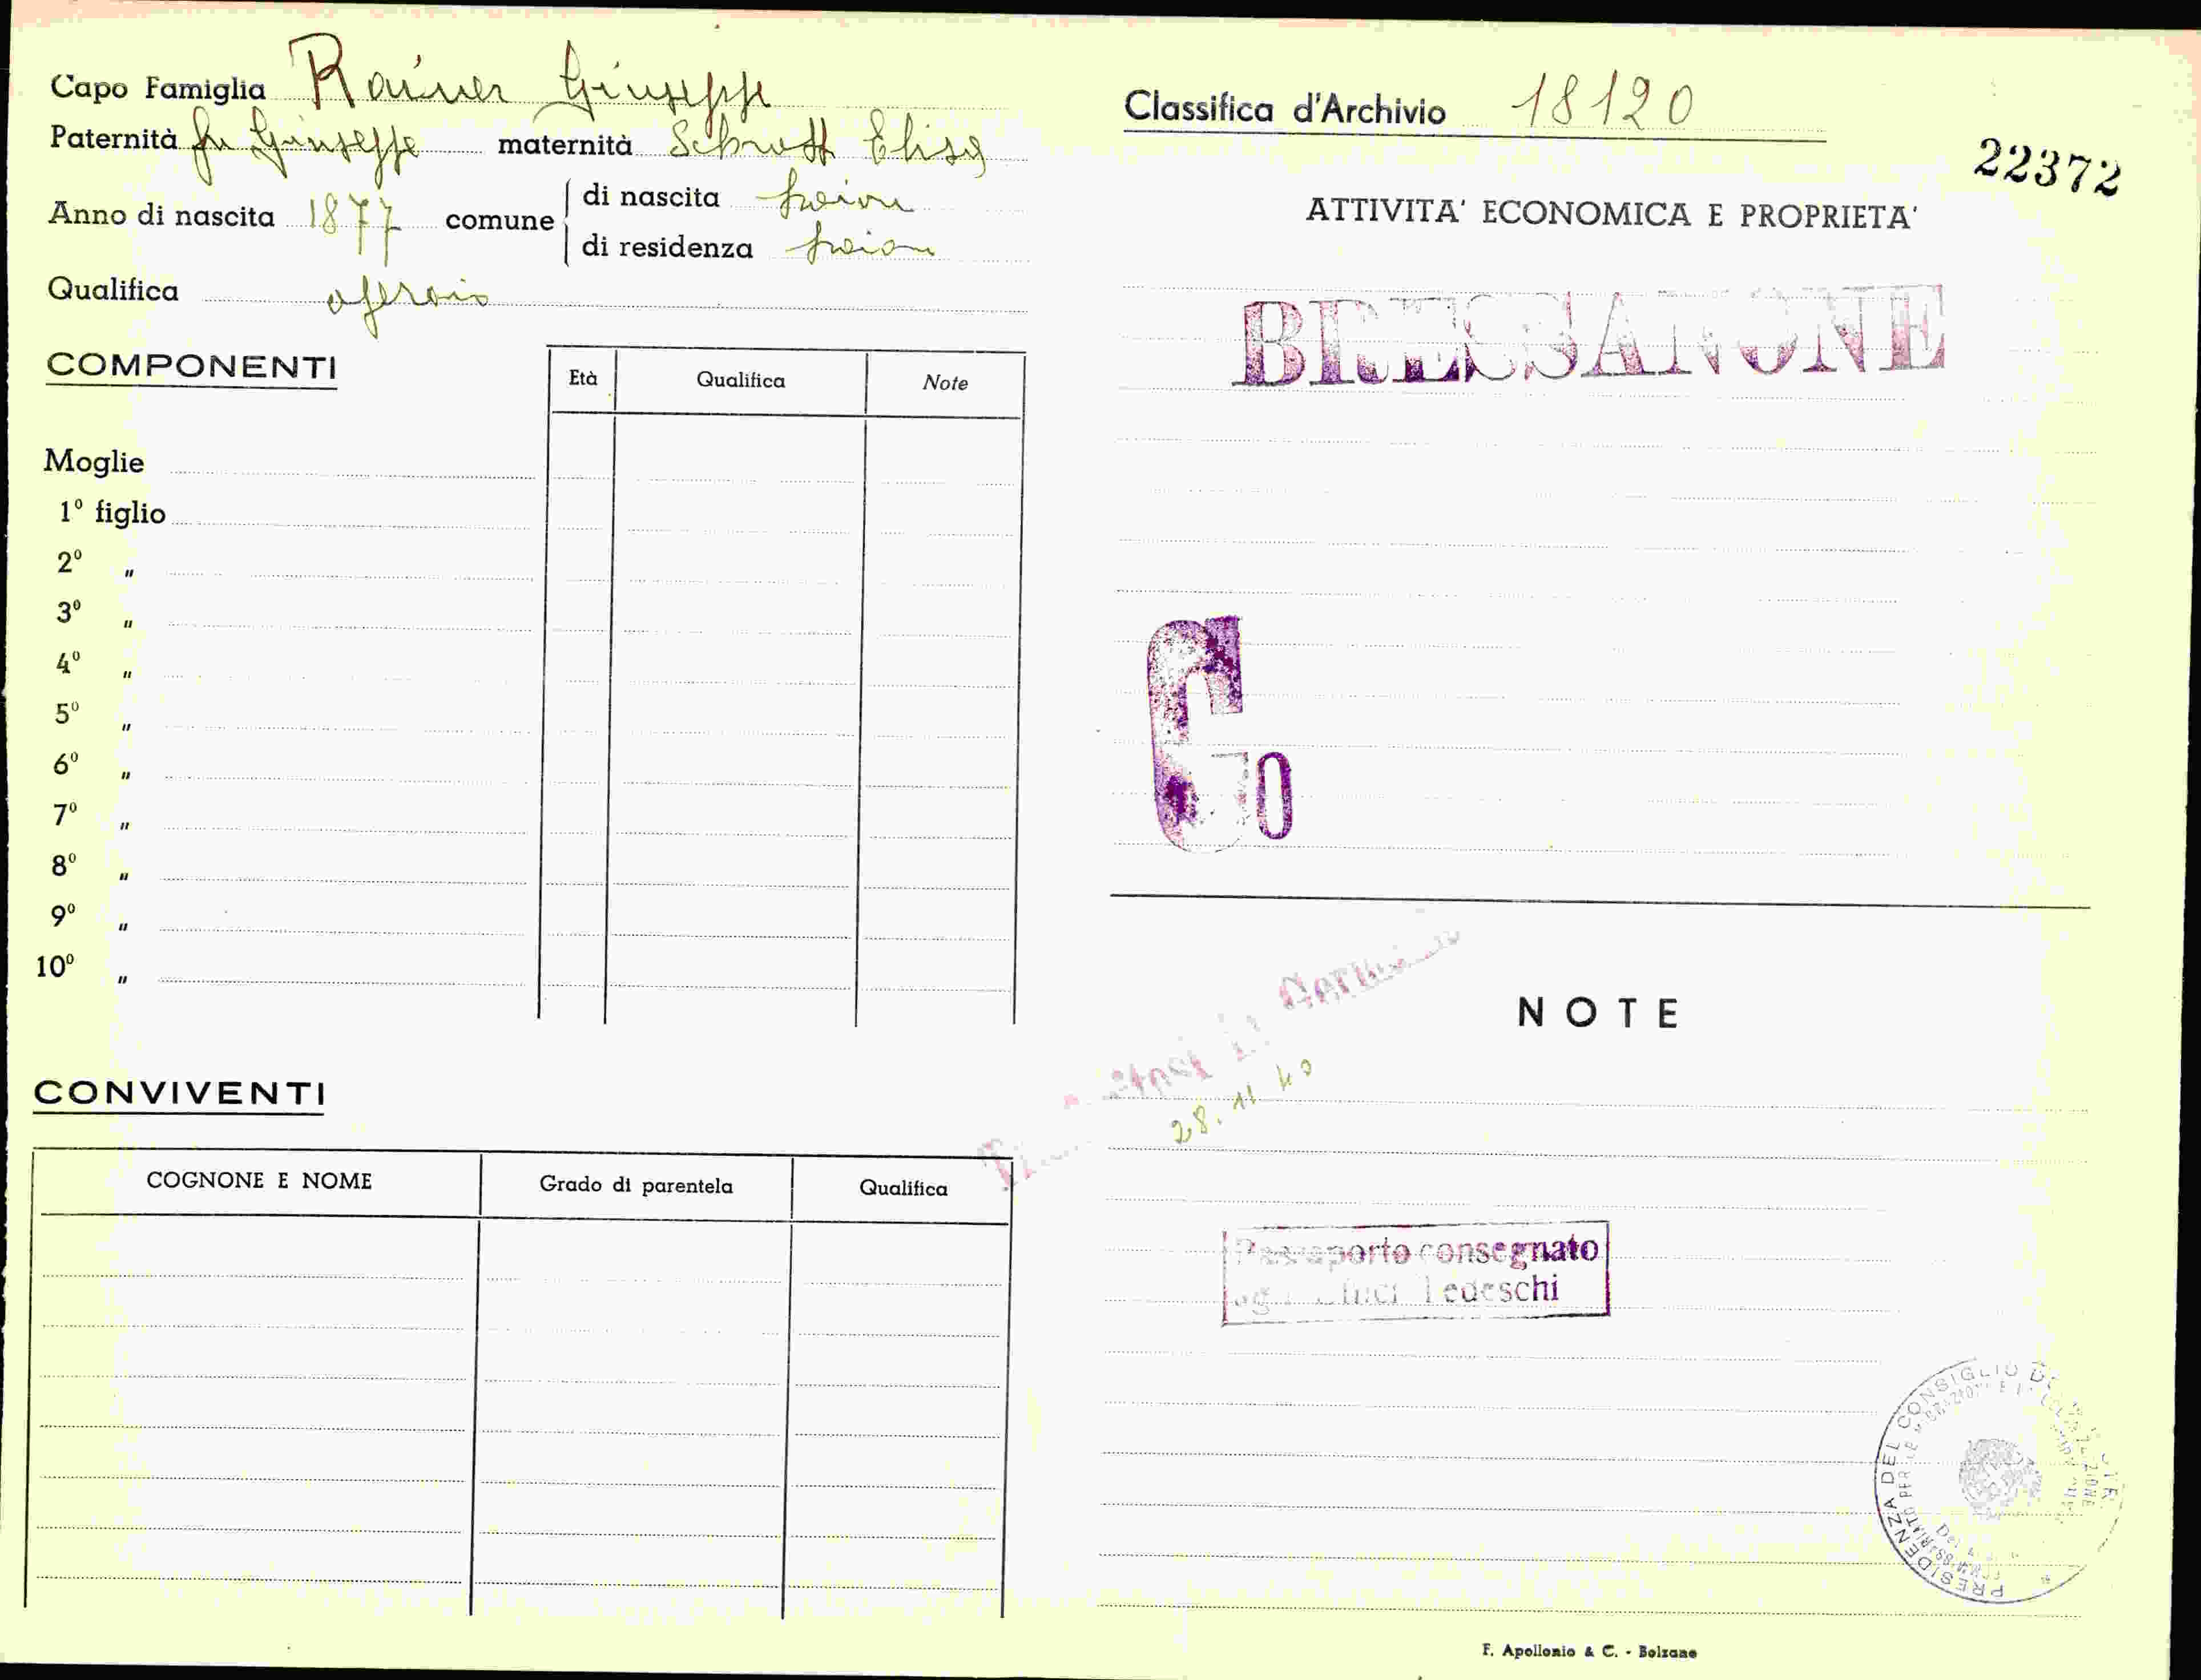 Capo Famiglia Rainer Giuseppe
Paternità fu Giuseppe maternità Schrott Elisa
Anno di nascita 1877 comune di nascita
di residenza
Qualifica operaio
COMPONENTI
Età Qualifica Note
Moglie
1º figlio
2º "
3º "
4º "
5º "
6º "
7º "
8º "
9º "
10º "
CONVIVENTI
COGNONE E NOME Grado di parentela Qualifica
Classifica d'Archivio 18120
22372
ATTIVITA' ECONOMICA E PROPRIETA'
BRESSANONE
G
0
NOTE
28.11.40
Passaporto consegnato
Tedeschi
PRESIDENZA DEL CONSIGLIO
F. Apollonio & C. - Bolzano